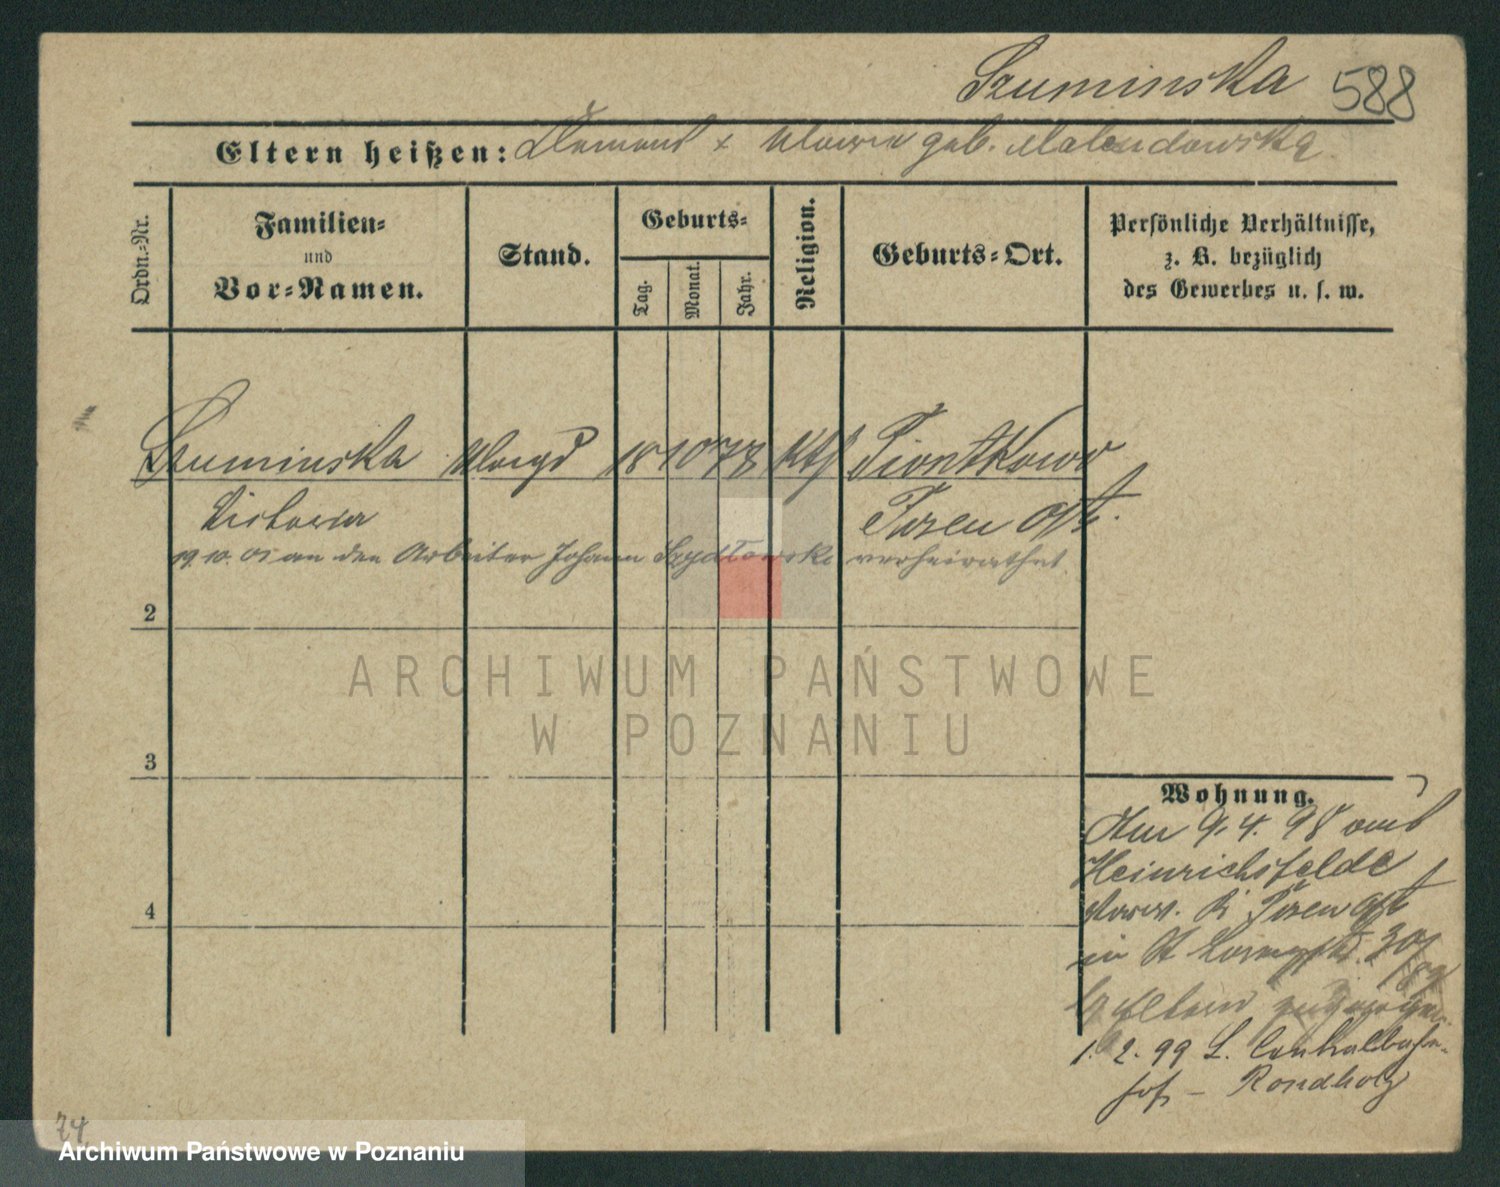 Szuminska 588
Eltern heißen: Klemens x Maria geb.
Ordn.-Nr.
Familien-
und
Vor-Namen.
Stand.
Geburts-
Tag.
Monat.
Jahr.
Religion.
Geburts-Ort.
Persönliche Verhältnisse,
z. B. bezüglich
des Gewerbes u. s. w.
Szuminska Magd 18 10 78 Kth Piontkowo
Victoria Posen Ost.
19. 10. 05 an den Arbeiter Johann Szydlowski verheirathet
2
3
4
ARCHIWUM PAŃSTWOWE
W POZNANIU
Wohnung.
Am 9. 4. 98 aus
Heinrichsfelde
Kr. Posen Ost
in St
Eltern zugezogen
1. 2. 99 L. Centralbahn-
hof - Rondholz
74
Archiwum Państwowe w Poznaniu